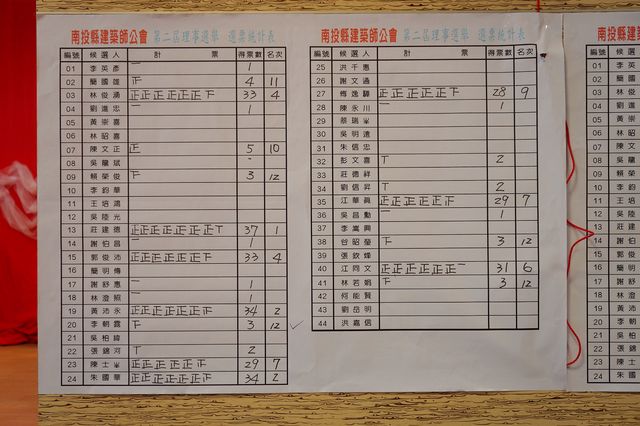 南投縣建築師公會 第二屆理事選舉 選票統計表
編號 候選人 計票 得票數 名次
01 李英彥 一 1
02 簡國雄 正 4 11
03 林俊湧 正正正正正正下 33 4
04 劉進忠 一 1
05 黃崇喜
06 林昭喜
07 陳文正 正 5 10
08 吳龍斌
09 賴榮俊 下 3 12
10 李鈞華
11 王培鴻
12 吳陸光
13 莊建德 正正正正正正正丅 37 1
14 謝伯昌 一 1
15 郭俊沛 正正正正正正下 33 4
16 簡明傳
17 謝舒惠 一 1
18 林澄照 一 1
19 黃沛永 正正正正正正正 34 2
20 李朝露 下 3 12
21 吳柏緯
22 張錦河 丅 2
23 陳士 正正正正正正 29 7
24 朱國華 正正正正正正正 34 2
南投縣建築師公會 第二屆理事選舉 選票統計表
編號 候選人 計票 得票數 名次
25 洪千惠
26 謝文通
27 傅逸驊 正正正正正下 28 9
28 陳永川 一 1
29 蔡瑞
30 吳明遠
31 朱信忠
32 彭文喜 丅 2
33 莊德祥
34 劉信昇 丅 2
35 江華員 正正正正正正 29 7
36 吳昌勳 一 1
37 李嵩興
38 谷昭瑩 下 3 12
39 張欽烽
40 江同文 正正正正正正一 31 6
41 林若娟 下 3 12
42 何能賢
43 劉岳明
44 洪嘉信
南投縣建築
編號 候選人
01 李英彥
02 簡國雄
03 林俊湧
04 劉進忠
05 黃崇
06 林昭
07 陳文
08 吳龍
09 賴榮俊
10 李鈞
11 王培
12 吳陸
13 莊建
14 謝伯
15 郭俊
16 簡明
17 謝舒
18 林澄
19 黃沛
20 李朝
21 吳柏
22 張錦
23 陳士
24 朱國